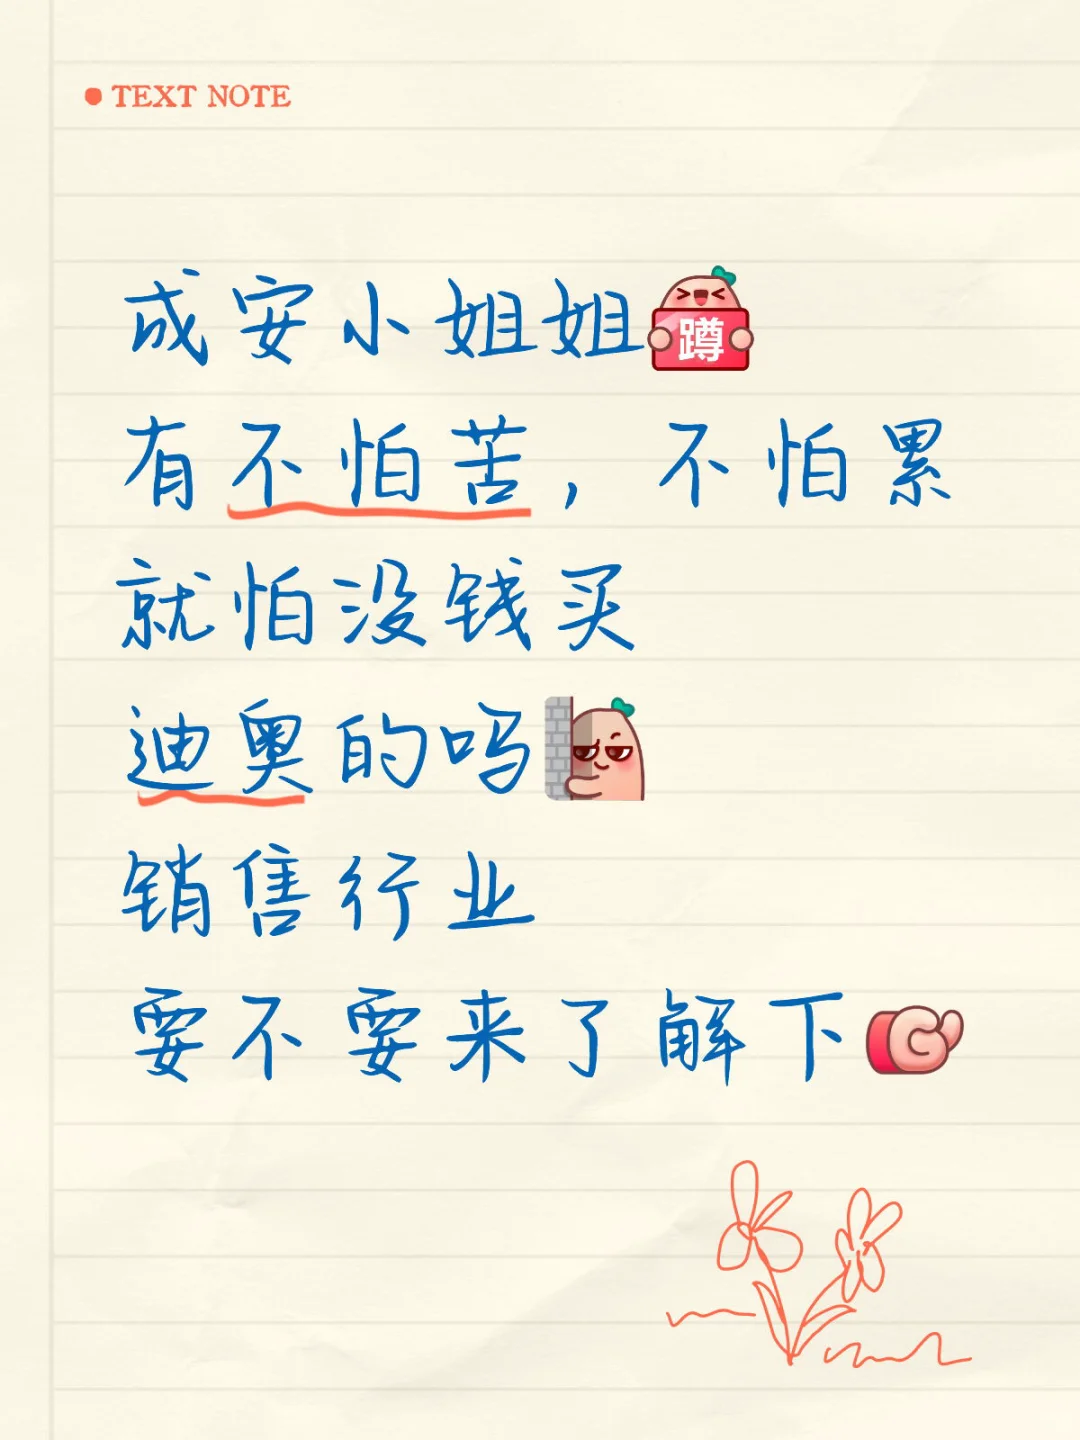 TEXT NOTE
成安小姐姐蹲
有不怕苦，不怕累
就怕没钱买
迪奥的吗
销售行业
要不要来了解下